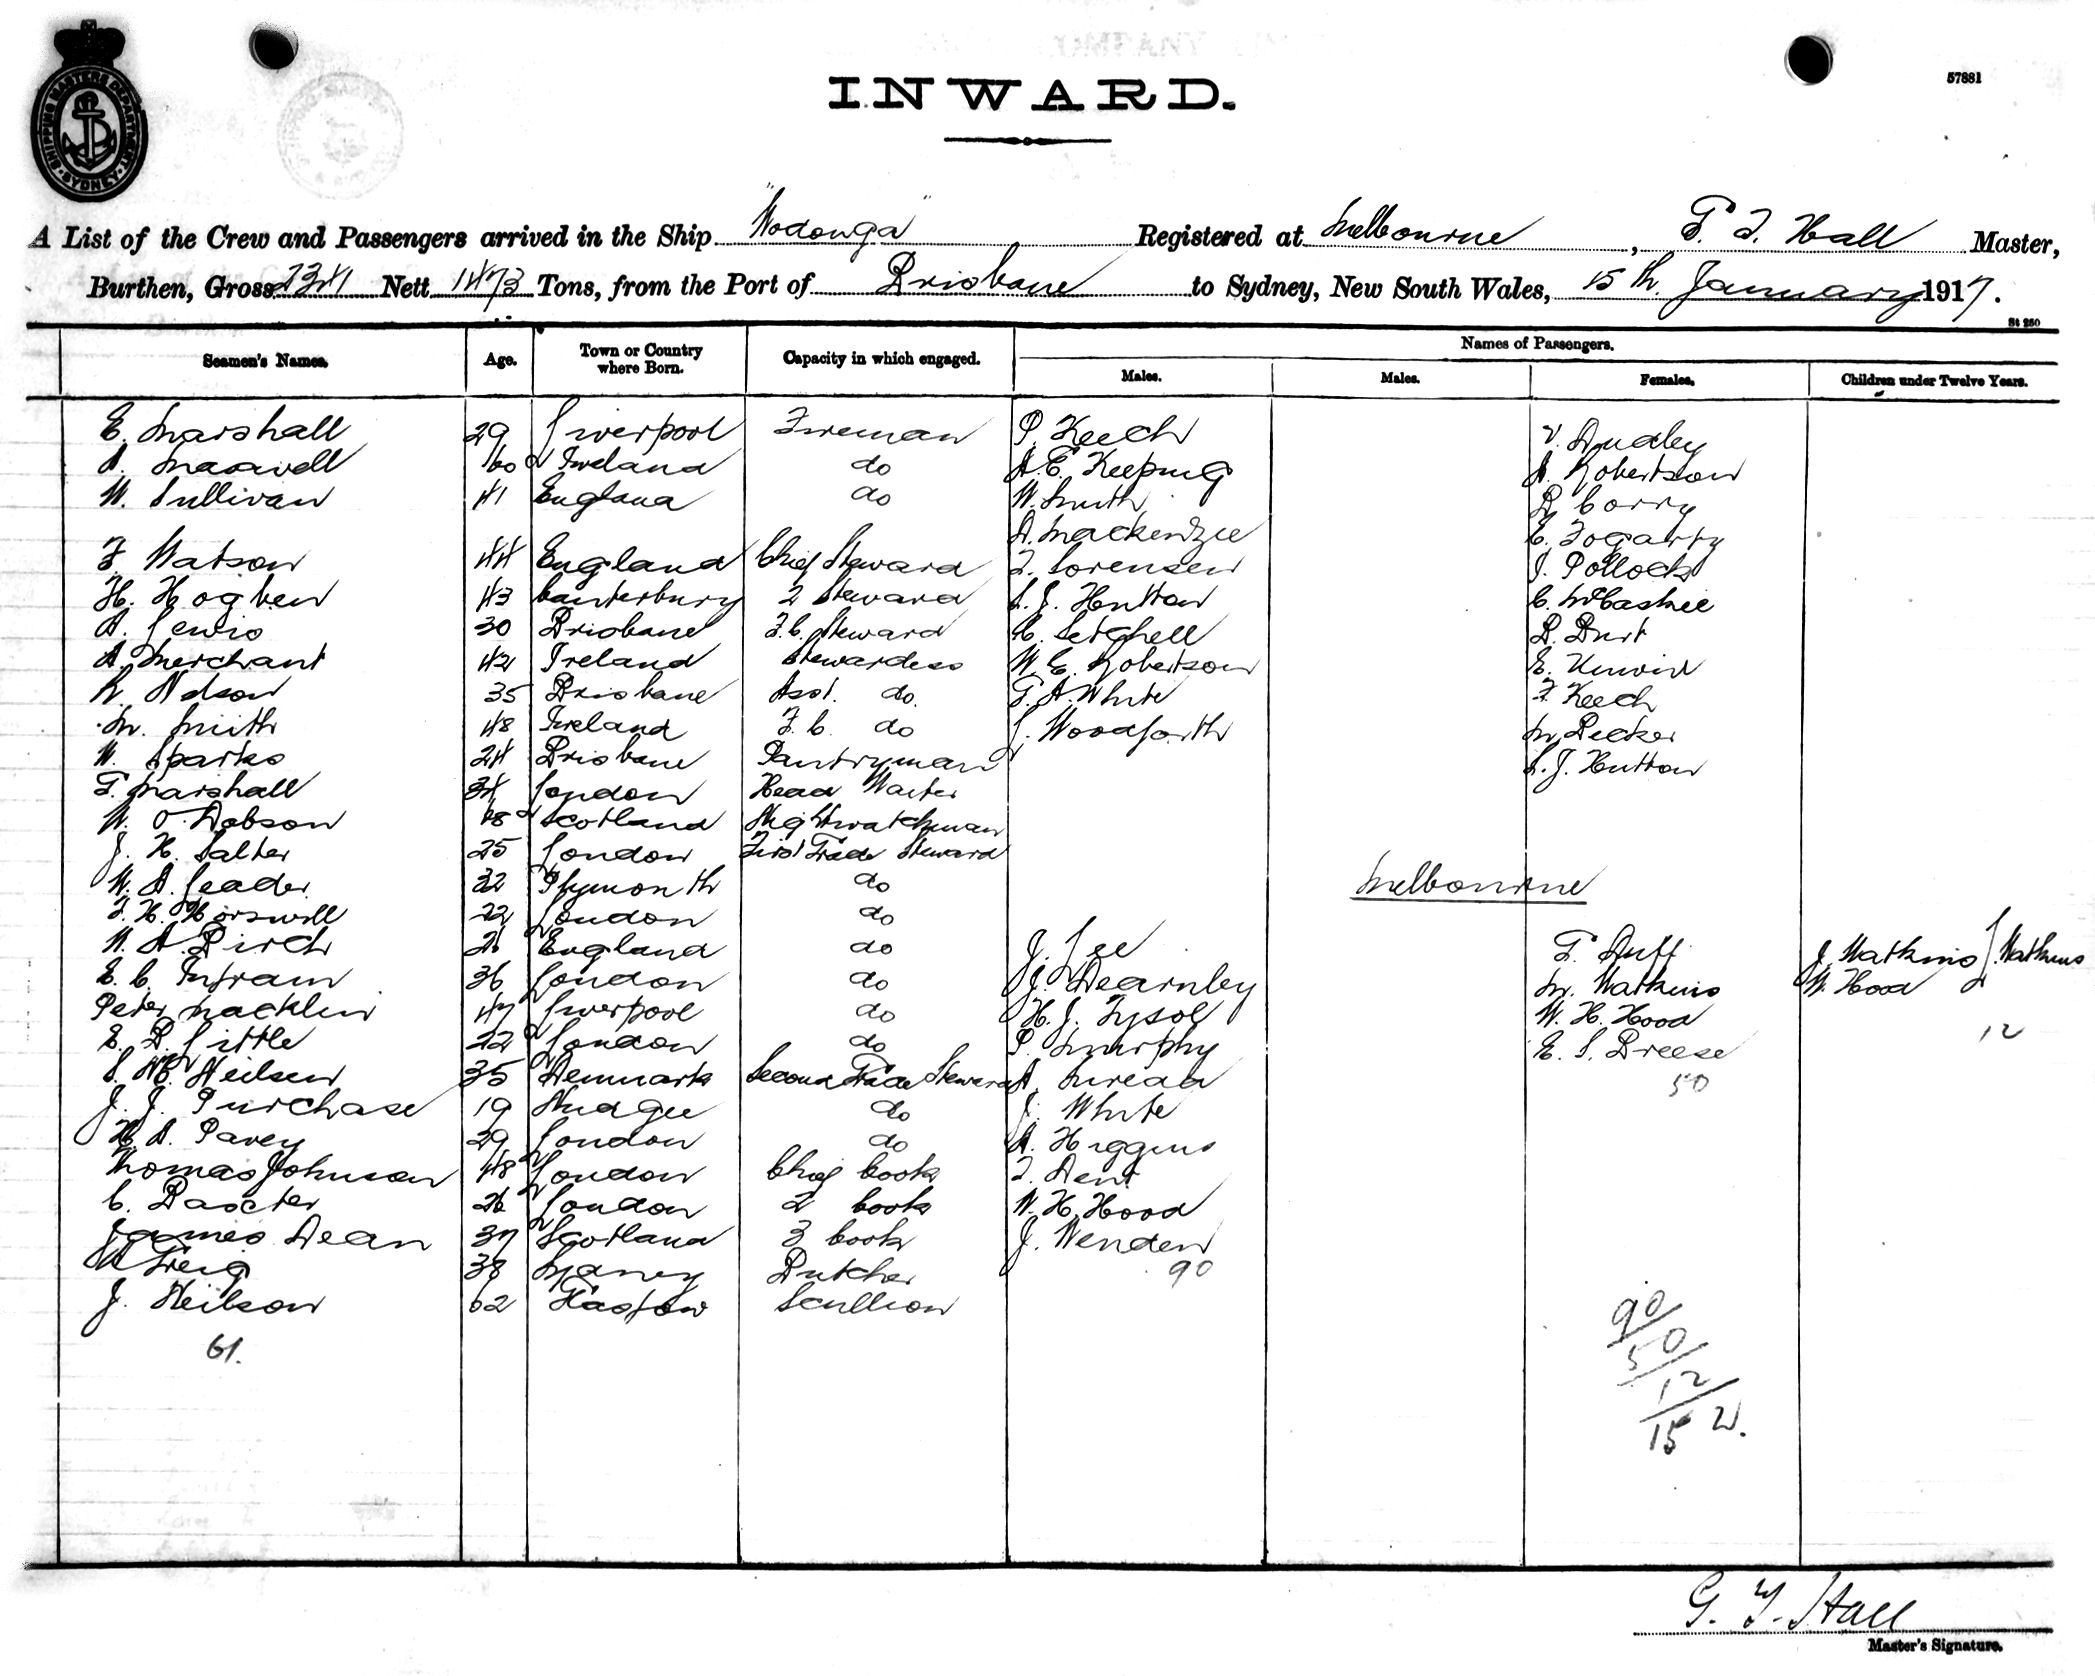 SHIPPING MASTERS DEPARTMENT SYDNEY
57881
INWARD.
A List of the Crew and Passengers arrived in the Ship "Wodonga" Registered at Melbourne, G. F. Hall Master,
Burthen, Gross 2341 Nett 1473 Tons, from the Port of Brisbane to Sydney, New South Wales, 15th. January 1917.
St 250
Seamen's Names. Age. Town or Country where Born. Capacity in which engaged. Names of Passengers.
Males. Males. Females. Children under Twelve Years.
E. Marshall 29 Liverpool Fireman P. Keech V. Dudley
A. Maxwell 60 Ireland do A. E. Keeping A. Robertson
W. Sullivan 41 England do W. Smith D. Corry
A. Mackenzie E. Fogarty
F. Watson 44 England Chief Steward F. Sorensen J. Pollock
H. Hogben 43 Canterbury 2 Steward S. J. Hutton C. McCaskie
A. Lewis 30 Brisbane F. C. Steward C. Setchell D. Burt
A. Merchant 42 Ireland Stewardess W. E. Robertson E. Unwin
R. Nelson 35 Brisbane Asst. do. G. A. White F. Keech
M. Smith 48 Ireland F. C. do J. Woodforth M. Becker
W. Sparks 24 Brisbane Pantryman S. J. Hutton
G. Marshall 34 London Head Waiter
W. O. Dobson 48 Scotland Nightwatchman
J. H. Salter 25 London First Grade Steward
W. A. Leader 32 Plymouth do
Melbourne
F. H. Horswill 22 London do
W. A. Birch 21 England do J. Lee G. Duff J. Watkins J. Watkins
E. C. Ingram 36 London do J. Dearnley M. Watkins W. Hood
Peter Macklin 47 Liverpool do H. J. Tysol W. H. Hood
E. B. Little 22 London do P. Murphy E. S. Breese 12
S. Neilsen 35 Denmark Second Grade Steward A. 50
J. J. Purchase 19 Nudgee do J. White
H. A. Pavey 29 London do A. Higgins
Thomas Johnson 48 London Chief Cook F. Dent
C. Baxter 26 London 2 Cook W. H. Hood
James Dean 37 Scotland 3 Cook J. Wenden
A. Greig 38 Sydney Butcher 90
J. Neilson 62 Glasgow Scullion
61.
90
50
12
152.
G. F. Hall
Master's Signature.